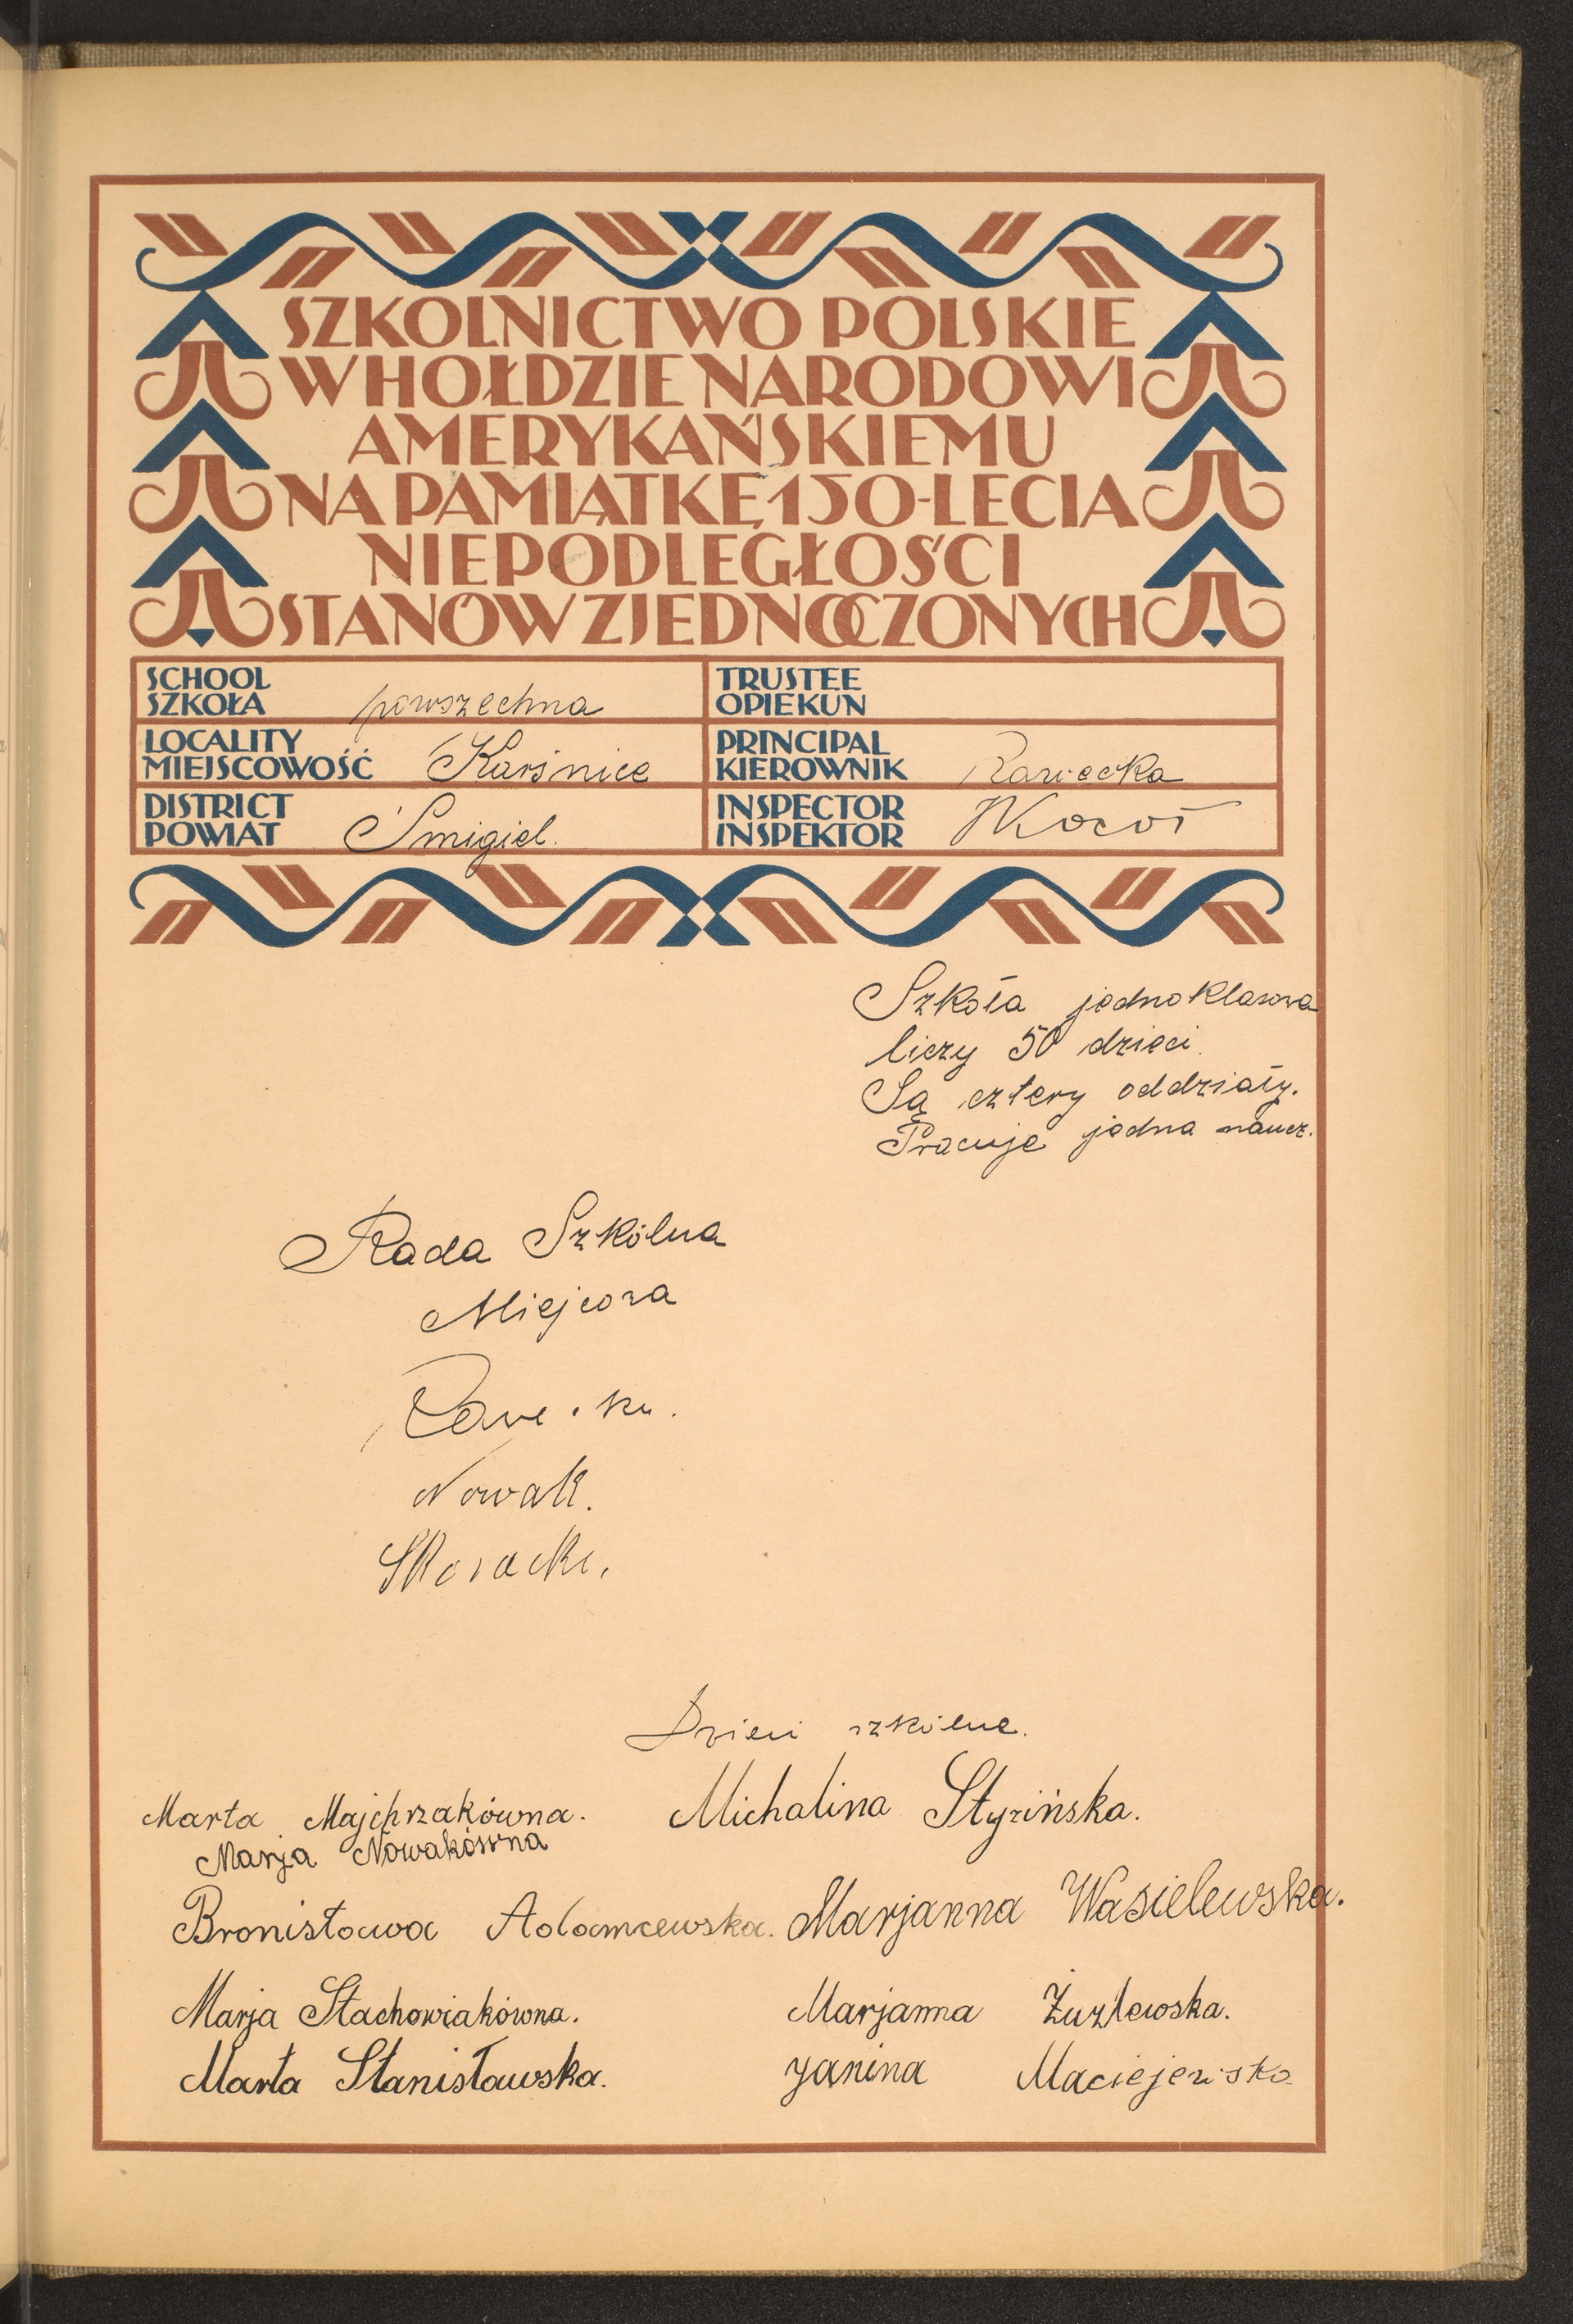 SZKOLNICTWO POLSKIE
W HOŁDZIE NARODOWI
AMERYKAŃSKIEMU
NA PAMIĄTKĘ 150-LECIA
NIEPODLEGŁOŚCI
STANÓW ZJEDNOCZONYCH
SCHOOL
SZKOŁA powszechna
TRUSTEE
OPIEKUN
LOCALITY
MIEJSCOWOŚĆ Karśnice
PRINCIPAL
KIEROWNIK Rawecka
DISTRICT
POWIAT Śmigiel.
INSPECTOR
INSPEKTOR Kocoł
Szkoła jednoklasowa
liczy 50 dzieci.
Są cztery oddziały.
Pracuje jedna naucz.
Rada Szkólna
Miejcowa
Nowak.
Dzieci szkólne.
Marta Majchrzakówna.
Marja Nowakówna
Bronisława Adamcewska.
Marja Stachowiakówna.
Marta Stanisławska.
Michalina Styzińska.
Marjanna Wasielewska.
Marjanna
Janina Maciejewska